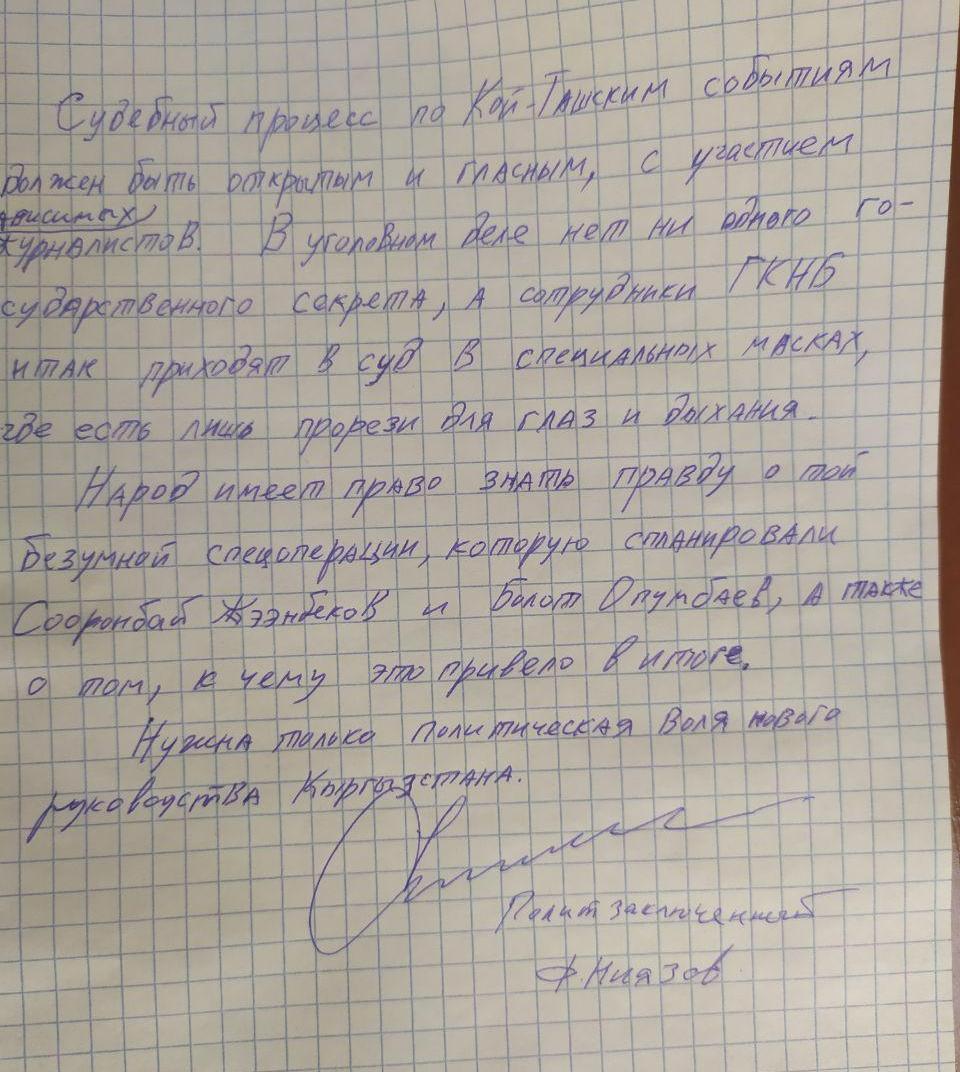 Судебный процесс по Кой-Ташским событиям
должен быть открытым и гласным, с участием
журналистов. В уголовном деле нет ни одного го-
сударственного секрета, а сотрудники ГКНБ
итак приходят в суд в специальных масках,
где есть лишь прорези для глаз и дыхания.
Народ имеет право знать правду о той
безумной спецоперации, которую спланировали
Сооронбай Жээнбеков и Болот Опумбаев, а также
о том, к чему это привело в итоге.
Нужна только политическая воля нового
руководства Кыргызстана.
Политзаключенный
Ф. Ниязов